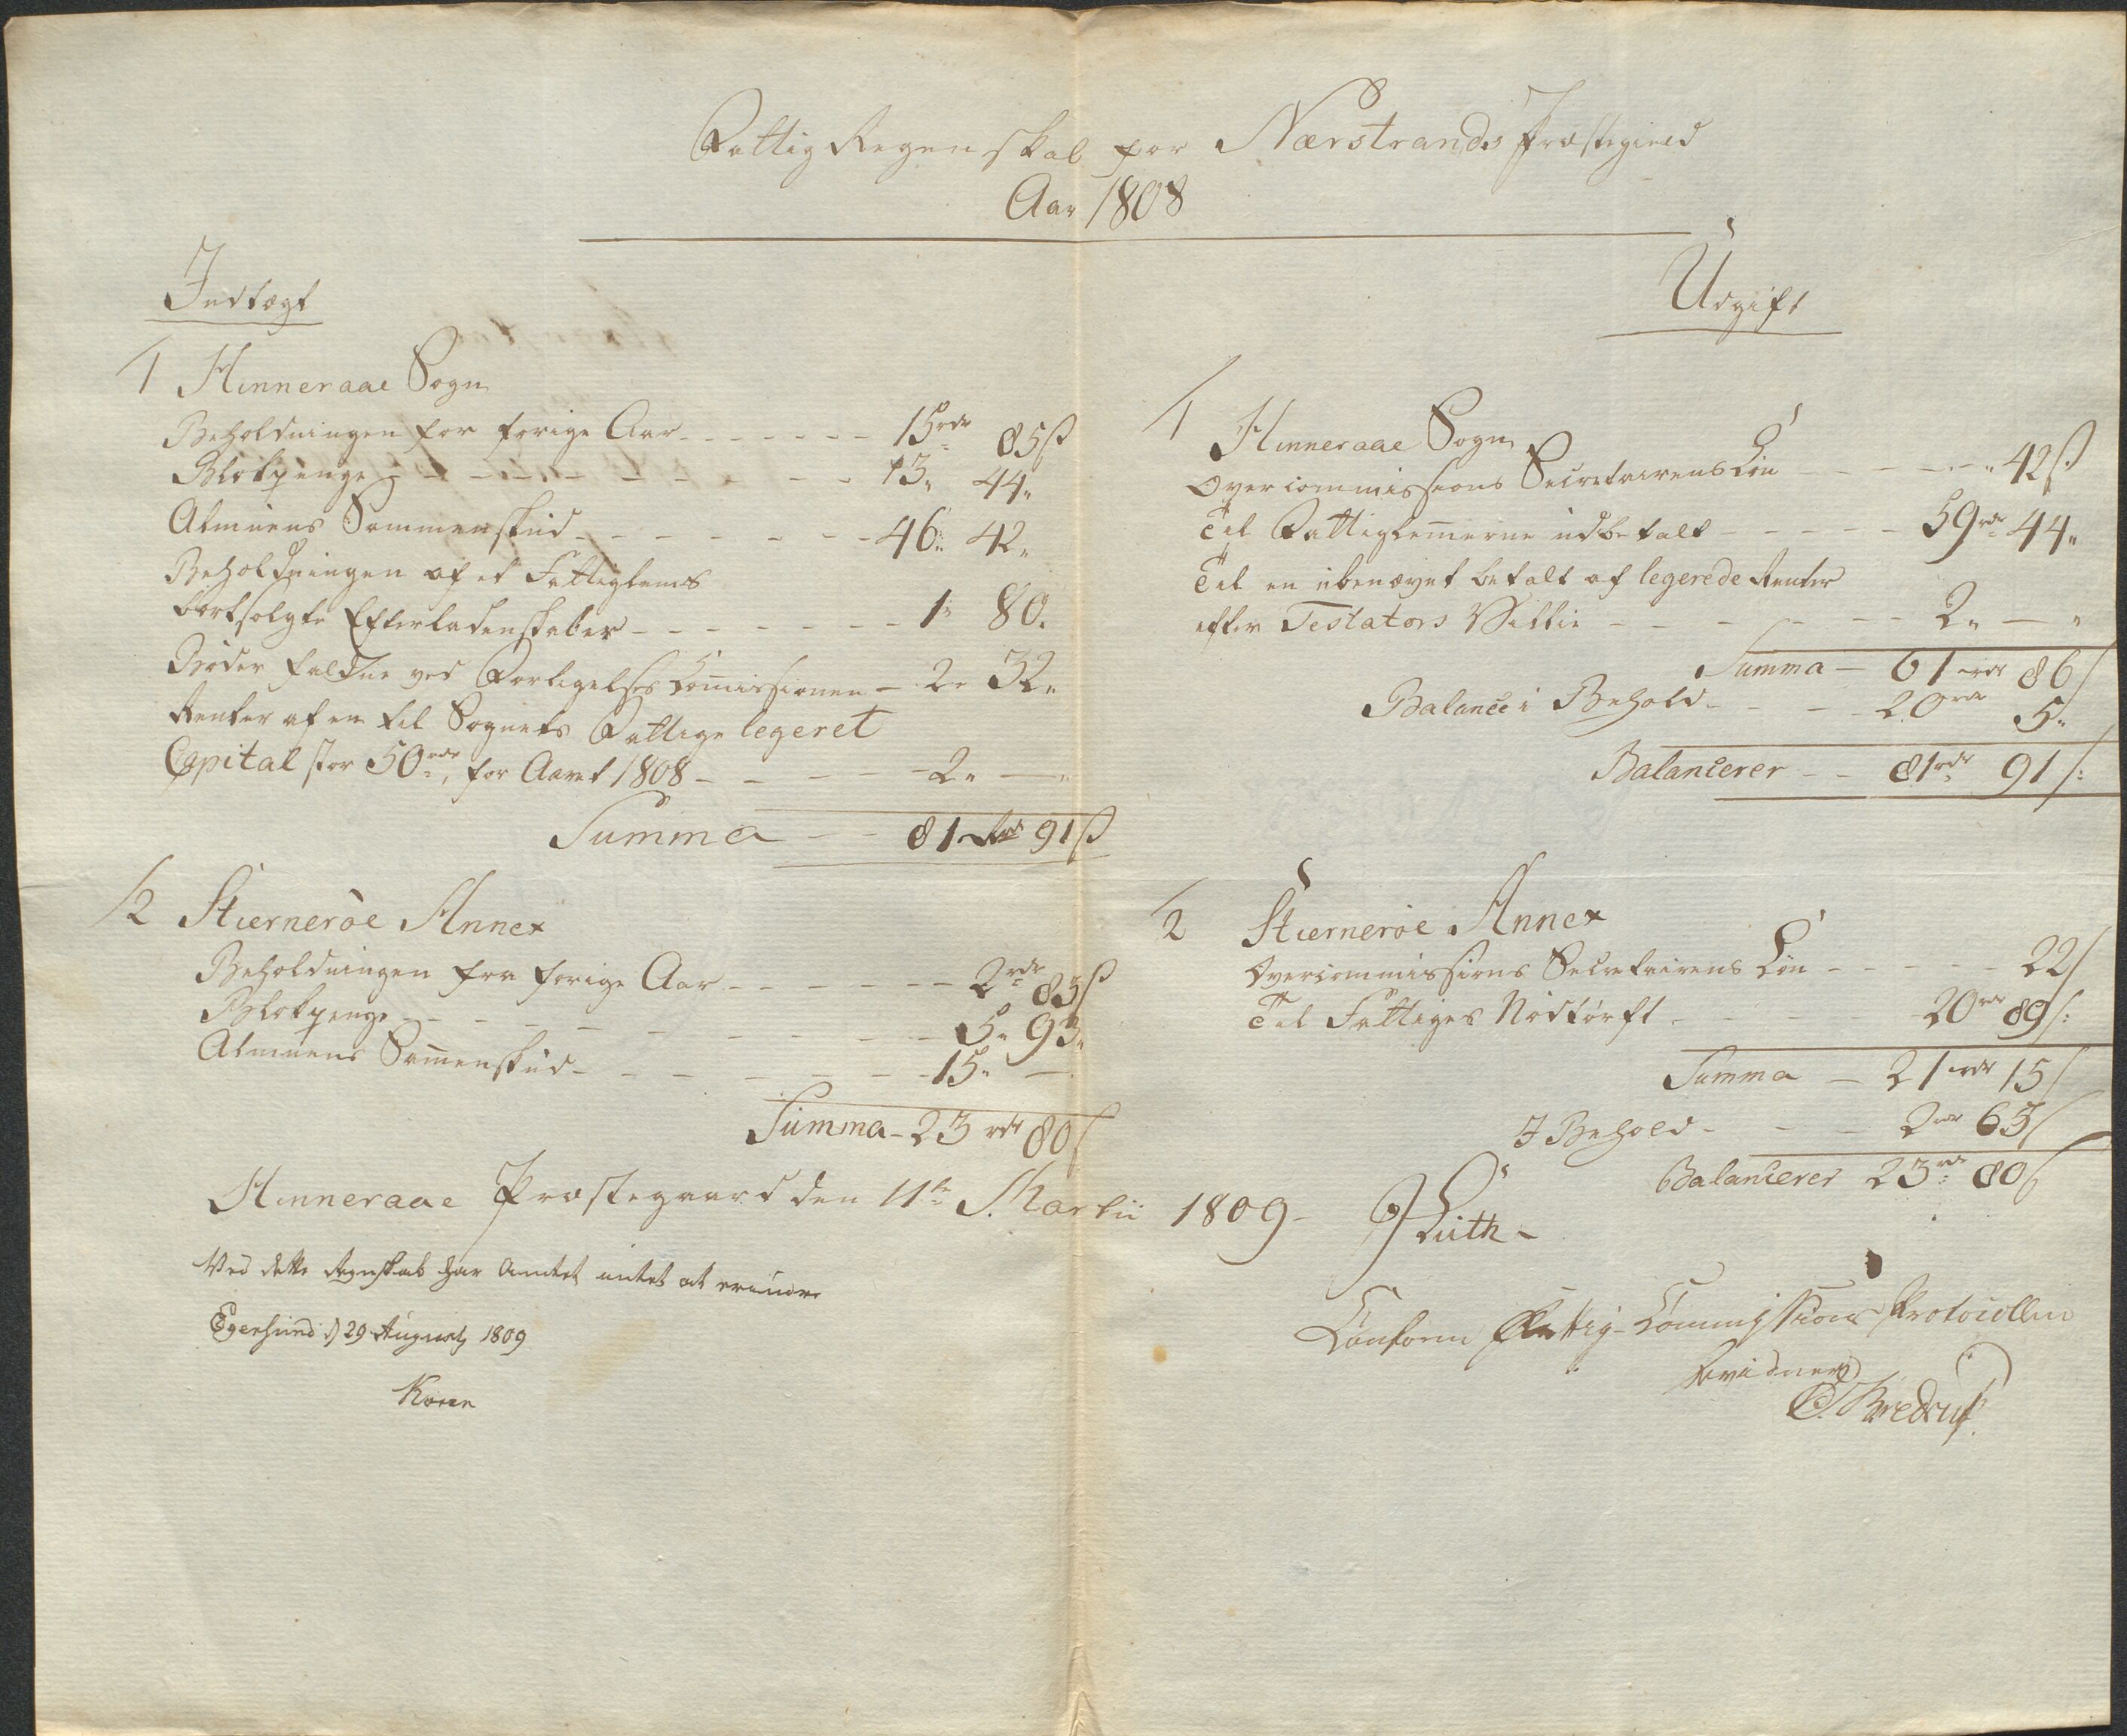 Fattig Regenskab for Nærstrands Præstegield
Aar 1808
Indtægt
1 Hinneraae Sogn
Beholdningen for forige Aar - - - 15rdr 85ß
Blokpenge - - - 13„ 44„
Almuens Sammenskud - - - 46„ 42„
Beholdningen af et Fattiglems
bortsolgte Efterladenskaber - - - 1„ 80.
Bøder faldne ved Forligelses Comissionen - 2„ 32„
Renter af en til Sognets Fattige legeret
Capital stor 50rdr, for Aaret 1808 - - - 2„ — „
Summa - - 81rdr 91ß
2 Stiernerøe Annex
Beholdningen fra forige Aar - - - 2rdr 83ß
Blokpenge - - - 5„ 93„
Almuens Sammenskud - - - 15„ —
Summa - 23rdr 80ß
Udgift
1 Hinneraae Sogn
Overcommissions Secretairens Løn - - - „ 42ß
Til Fattiglemmerne udbetalt - - - 59rdr 44„
Til en ubenævnt betalt af legerede Renter
efter Testators Villie - - - 2„ — „
Summa - 61rdr 86ß
Balance i Behold - - - 20rdr 5„
Balancerer - - 81rdr 91ß
2 Stiernerøe Annex
Overcommissions Secretairens Løn - - - 22ß
Til Fattiges Nødtørft - - - 20rdr 89ß
Summa - 21rdr 15ß
I Behold - - - 2rdr 65ß
Balancerer 23rdr 80ß
Hinneraae Præstegaard den 11te Martii 1809 - Luth -
Ved dette Regnskab har Amtet intet at erindre
Egersund d 29 August 1809
Koren
Conform Fattig-Commissions Protocollen
bevidner
Bredrup